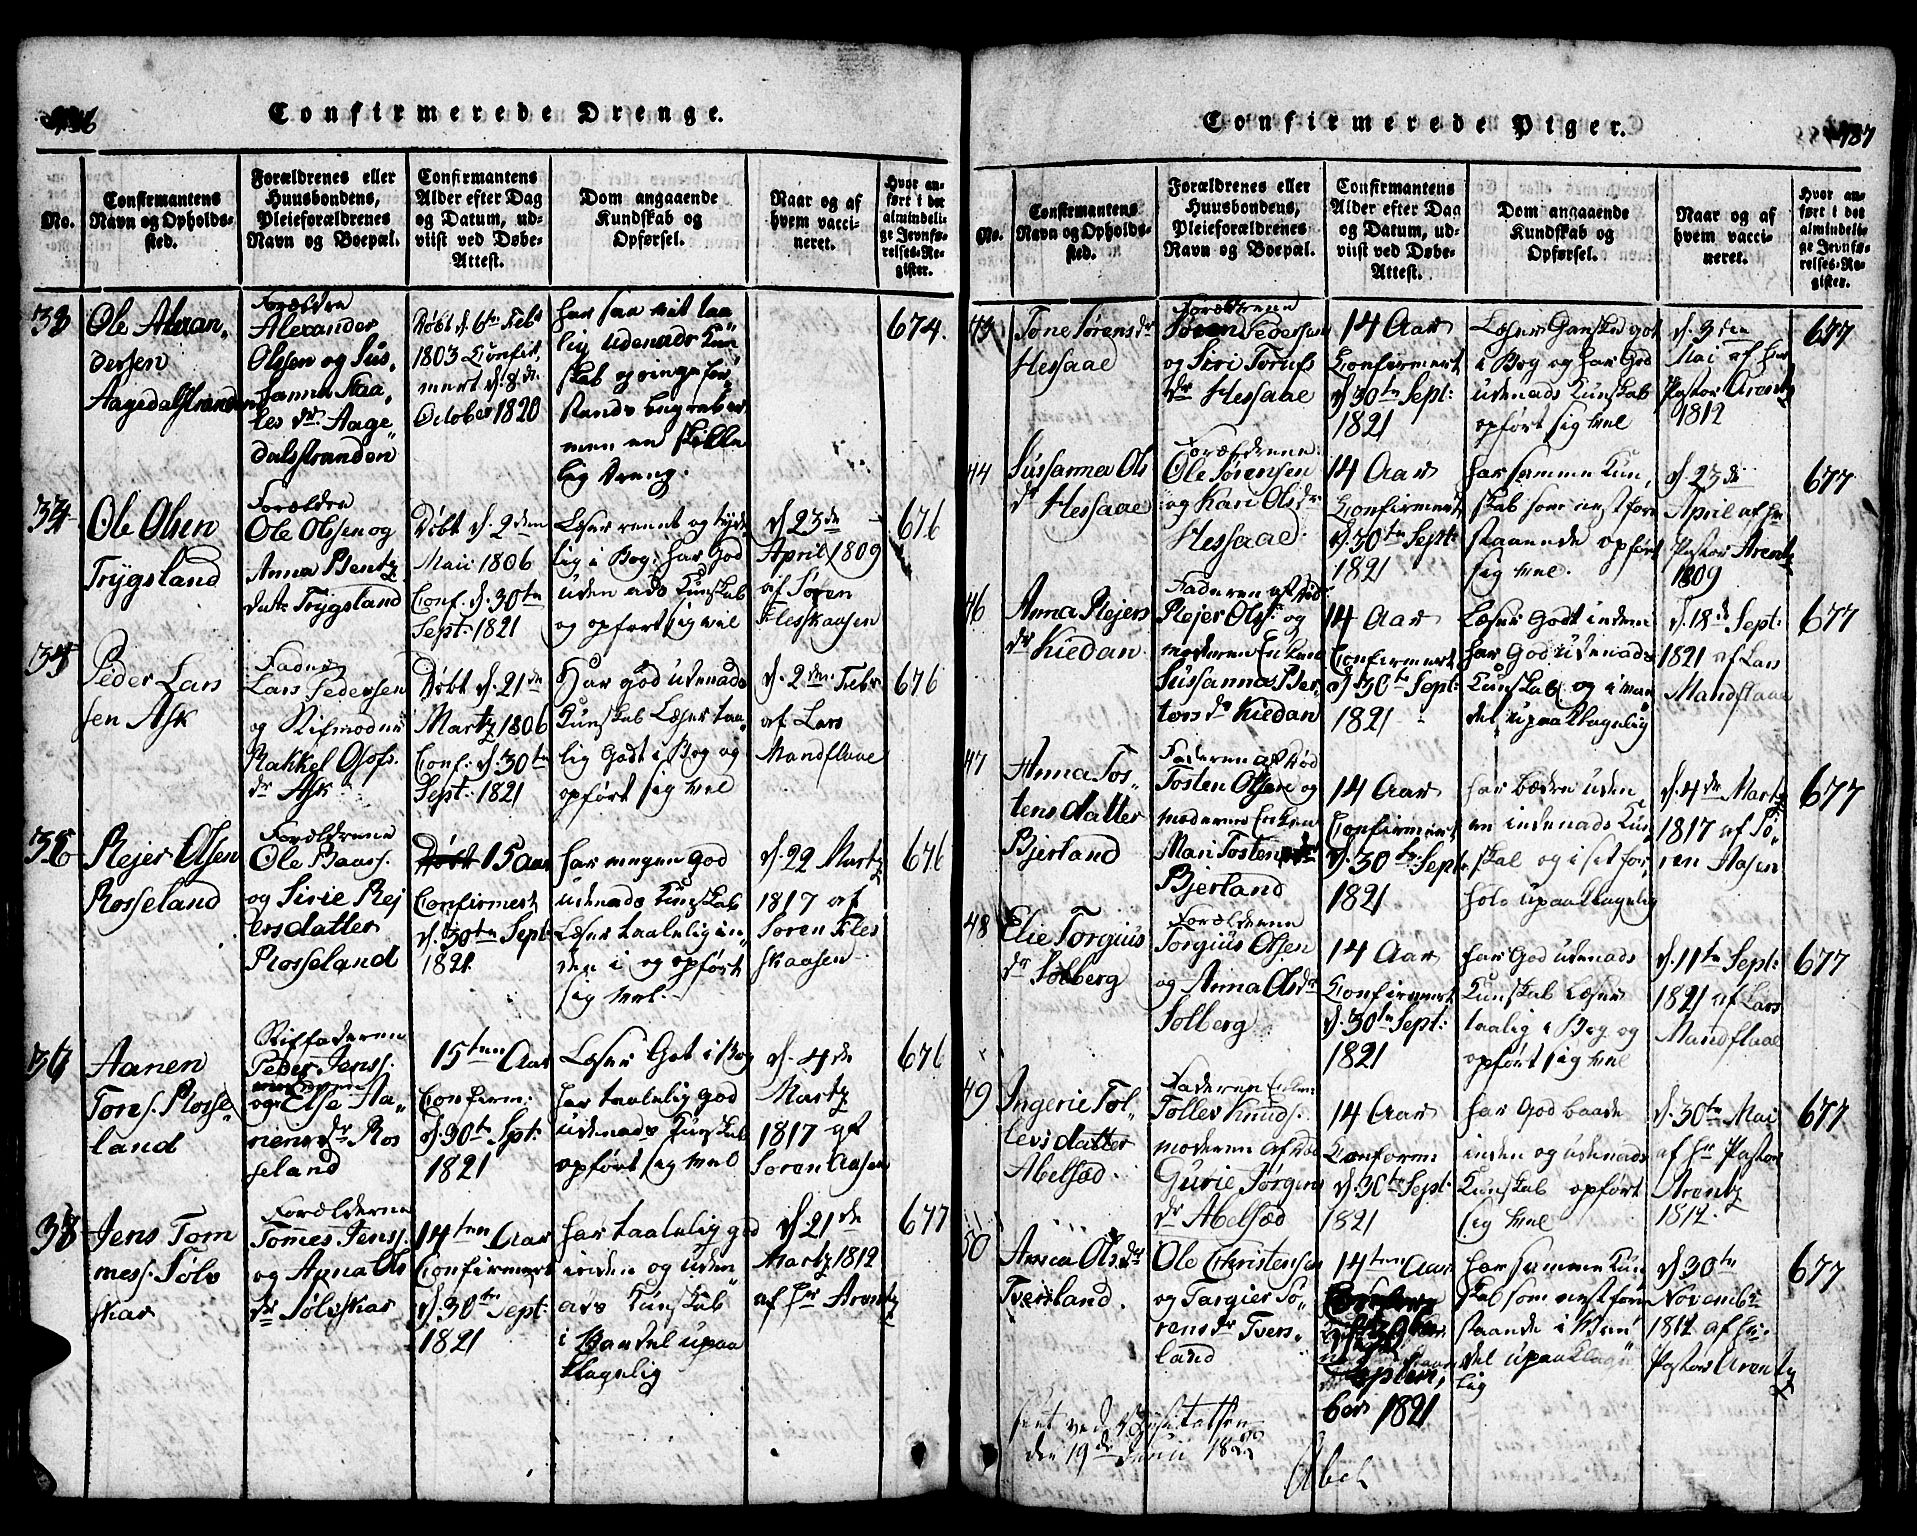 Confirmerede Drenge.
No.
Confirmantens
Navn og Opholds-
sted.
Forældrenes eller
Huusbondens,
Pleieforældrenes
Navn og Boepæl.
Confirmantens
Alder efter Dag
og Datum, ud-
viist ved Døbe-
Attest.
Dom angaaende
Kundskab og
Opførsel.
Naar og af
hvem vacci-
neret.
Hvor an-
ført i det
almindeli-
ge Jevnfø-
relses-Re-
gister.
33
Ole Alexan,
dersen
Aagedalstranden
Forældre
Alexander
Olsen og Sus,
sanna Kaa,
les dr. Aage
dalsstranden
Døbt d. 6te Febr
1803 Confir,
mert d. 8de
October 1820
har saa vit taa
lig udenads Kun
skab og ringe for,
stands begreber
men en skikke
lig dreng.
674.
34
Ole Olsen
Trygsland
Forældre
Ole Olsen og
Anna Bentz
datr Trygsland
Døbt d. 2den
Maii 1806
Conf. d. 30te
Sept: 1821
Læser rent og tyde
lig i Bog: har God
uden ads Kunskab
og opført sig vel
d. 23de
April 1809
af Søren
Fleskaasen
676
35
Peder Lars
sen Ask
Fader
Lars Pedersen
og Stifmoder
Rakkel Olofs.
dr Ask
Døbt d. 21de
Martz 1806
Conf: d. 30te
Sept: 1821
Har god udenads
Kunskab Læser taa
lig Godt i Bog og
opført sig vel
d. 2den Febr
af Lars
Mandflaae
676
36
Rejer Olsen
Rosseland
Forældrene
Ole Baars.
og Sirie Rej
ersdatter
Rosseland
15 Aar
Confirmert
d. 30te Sept:
1821
har megen god
udenads Kunskab
Læser taalelig in,
den i og opført
sig vel.
d. 22 Martz
1817 af
Søren Fles
kaasen
676
Aanen
Tors. Rosse
land
Stiffaderen
Peder Jenss.
og Else Ma,
riens dr Ros
seland
15ten Aar
Confirm:
d. 30te Spt:
1821
Læser Got i Bog
har taalelig god
udenads Kunskab
opført sig vel
d. 4de
Martz
1817 af
Søren Aasen
676
38
Jens Tom
mess. Sølv
skar
Forælderne
Tommes Jenss.
og Anna Ols
dr Sølvskar
14ten Aar
Confirmert
d. 30te Sept:
1821
har taalelig god
inden og uden
ads Kunskab
i Vandel upaa
klagelig
d. 21de
Martz 1812
af Hr Arentz
677
Confirmerede Piger.
No.
Confirmantens
Navn og Opholds-
sted.
Forældrenes eller
Huusbondens,
Pleieforældrenes
Navn og Boepæl.
Confirmantens
Alder efter Dag
og Datum, ud-
viist ved Døbe-
Attest.
Dom angaaende
Kundskab og
Opførsel.
Naar og af
hvem vacci-
neret.
Hvor an-
ført i det
almindeli-
ge Jevnfø-
relses-Re-
gister.
Tone Sørens dr
Hessaae
Forældrene
Søren Pedersen
og Siri Torufs
dr Hessaae
14 Aar
Confirmert
d. 30te Sept:
1821
Læser Ganske got
i Bog og har God
udenads Kunskab
opført sig vel
d. 3die
Mai af Hr
Pastor Arentz
1812
677
44
Sussanna Ols
dr Hessaae
Forældrene
Ole Sørensen
og Kari Ols dr
Hessaae
14 Aar
Confirmert
d. 30te Sept:
1821
har samme Kun,
skab som nest foru
staaende opført
sig vel.
d. 23de
April af Hr
Pastor Arentz
1809
677
46
Anna Rejers
dr Kiedan
Faderen af Død
Rejer Ols. og
moderen Enken
Sussanna Per,
ters dr Kiedan
14 Aar
Confirmert
d. 30te Sept:
1821
Læser Godt inden i
har God udenads
Kunskab og i van
del upaaklagelig
d. 18de Sept:
1821 af Lars
Mandflaae
677
47
Anna Tos,
tens datter
Bjerland
Faderen af Død
Tosten Olsen og
moderen Enken
Mari Tosten
Bjerland
14 Aar
Confirmert
d. 30te Sept
1821
har bædre uden
en indenads Kun
skab og i sit for,
hold upaaklagelig
d. 4de Martz
1817 af Sø,
ren Aasen
677
48
Elie Torgius
dr Solberg
Forælderene
Torgius Olsen
og Anna Ols dr
Solberg
14 Aar
Confirmert
d. 30te Sept:
1821
har God udenads
Kunskab Læser
taalig i Bog og
opført sig vel
d. 11te Sept:
1821 af Lars
Mandflaae
677
49
Ingerie Tol,
levs datter
Abelsæd.
Faderen Enken
Tollev Knuds.
moderen af Død
Gurie Jørgens
dr Abelsæd
14 Aar
Confirm
d. 30te Sept:
1821
har God baade
inden og udenads
Kunskab opført
sig vel
d. 30te Mai
af Hr Pastor
Arentz
1812.
677
50
Anna Ols dr
Tversland.
Ole Christensen
og Targier Sø,
rens dr Tvers,
land
14ten Aar
Septem,
ber 1821
har samme Kun
skab som nest foru
staande i Van
del upaaklage
lig
d. 30te
Novembr
1812 af Hr:
Pastor Arentz
677
seet ved Visitatsen
den 19de Junii 1822